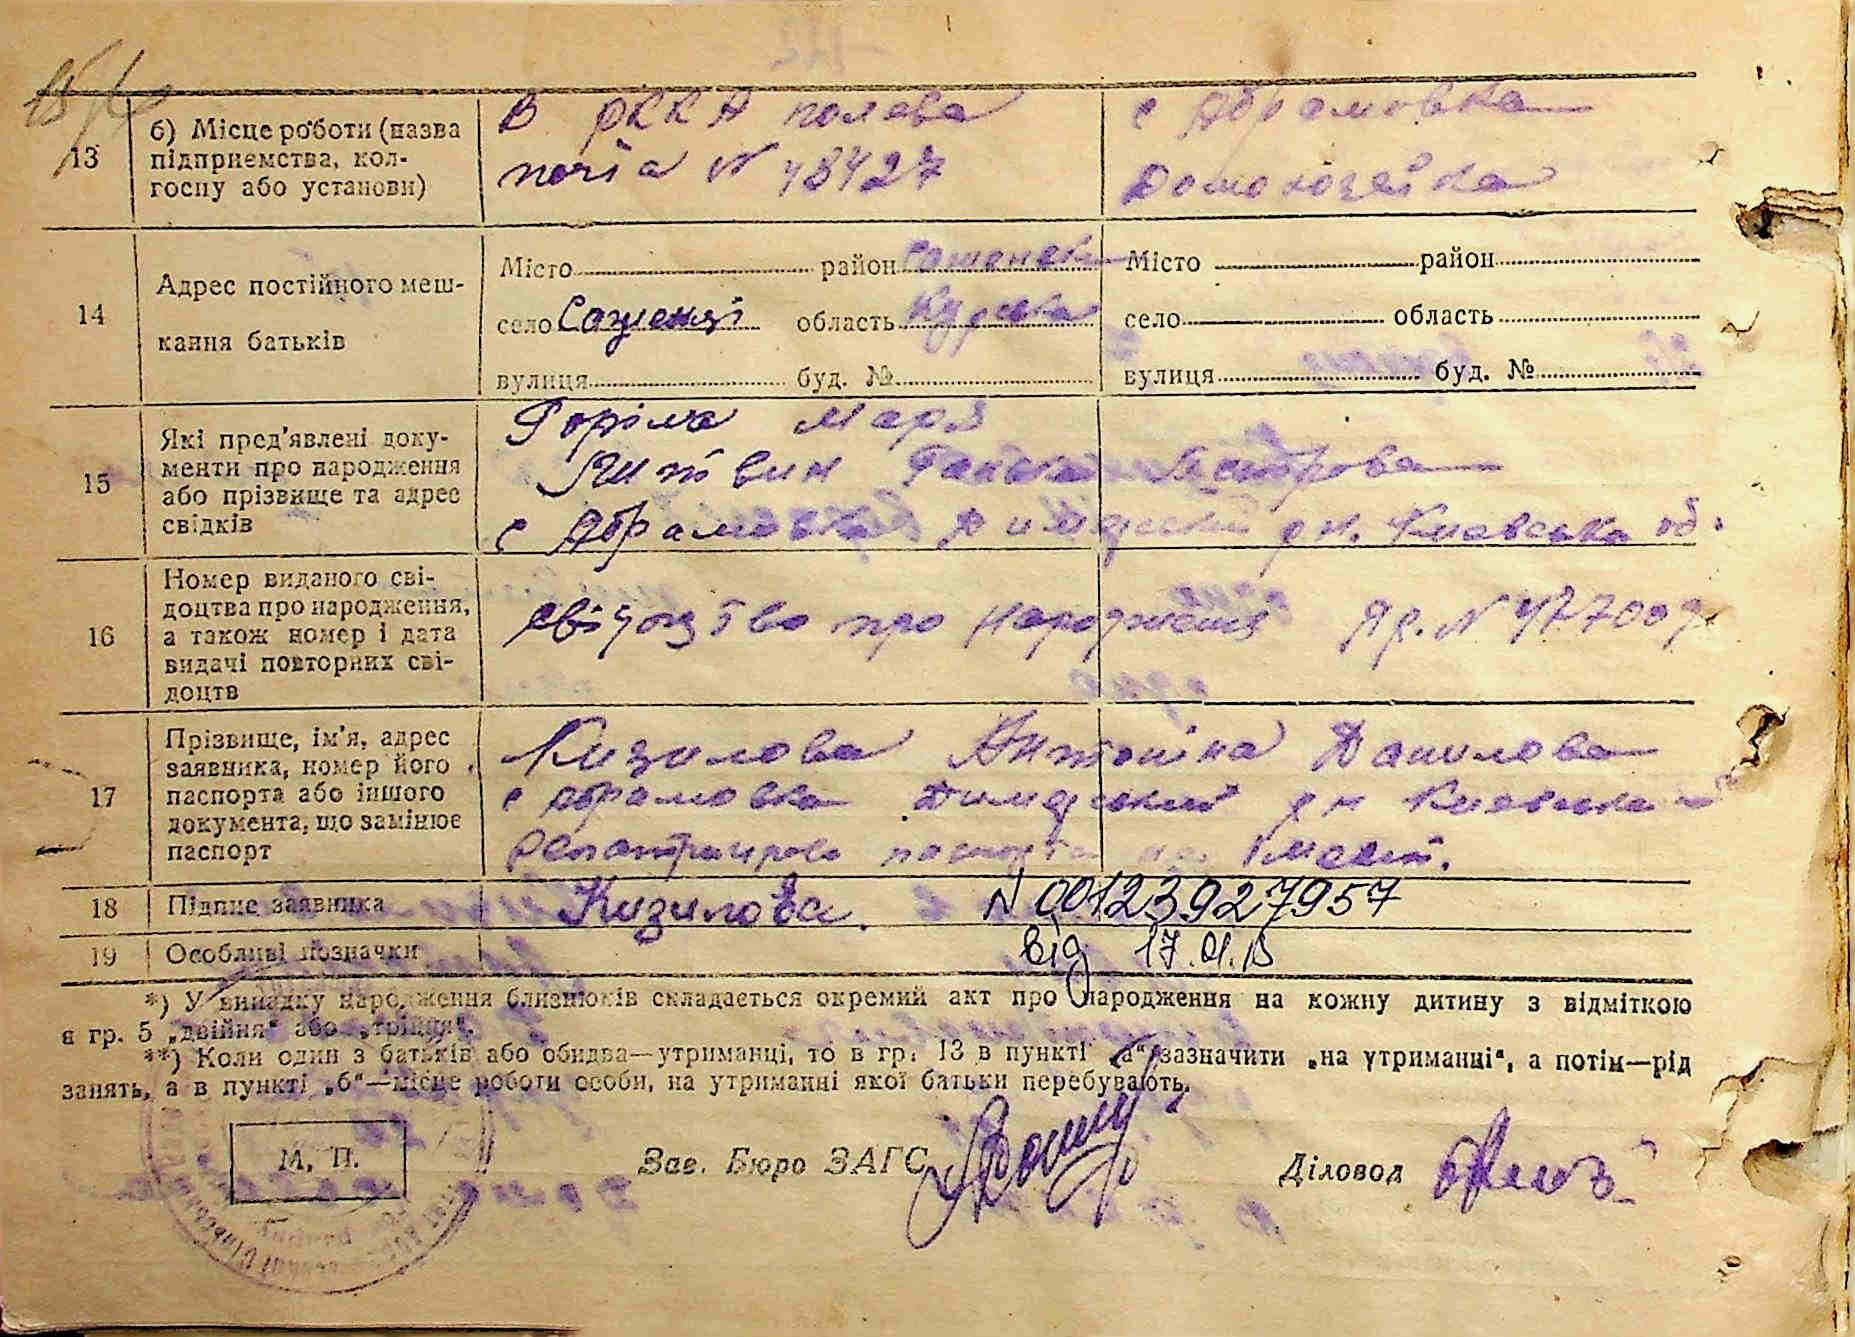 13
б) Місце роботи (назва
підприємства, кол-
госпу або установи)
В РККА полева
почта N 48427
с Абрамовка
Домохозяйка
14
Адрес постійного меш-
кання батьків
Місто район
село Саженці область Курска
вулиця буд. №
Місто район
село область
вулиця буд. №
15
Які пред'явлені доку-
менти про народження
або прізвище та адрес
свідків
Горіла Марія
Литвин Ганна Петрова
с Абрамовка Димерский рн. Киевська об.
16
Номер виданого сві-
доцтва про народження,
а також номер і дата
видачі повторних сві-
доцтв
свідоцтво про народження Яр. N 477009
17
Прізвище, ім'я, адрес
заявника, номер його
паспорта або іншого
документа, що замінює
паспорт
Кизилова Антоніна Данилова
с Абрамовка Димерський рн Киевска
18
Підпис заявника
Кизилова.
N 00123927957
19
Особливі позначки
від 17.01.13
*) У випадку народження близнюків складається окремий акт про народження на кожну дитину з відміткою
в гр. 5 „двійня“ або „трійця“.
**) Коли один з батьків або обидва—утриманці, то в гр. 13 в пункті „а“ зазначити „на утриманці“, а потім—рід
занять, а в пункті „б“—місце роботи особи, на утриманні якої батьки перебувають.
М. П.
Зав. Бюро ЗАГС
Діловод